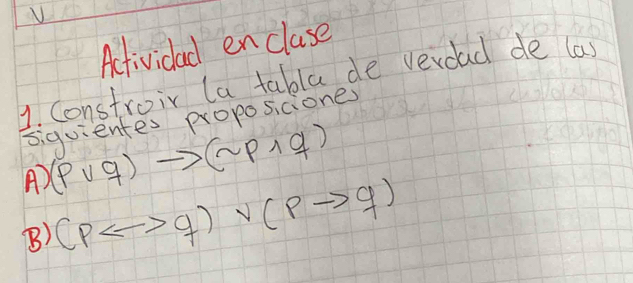 V
Actividad en clase
1. Constroir la tabla de verdad de las
siguientes proposiciones
A) (p ∨ q) → (~p ∧ q)
B) (p <-> q) ∨ (p → q)